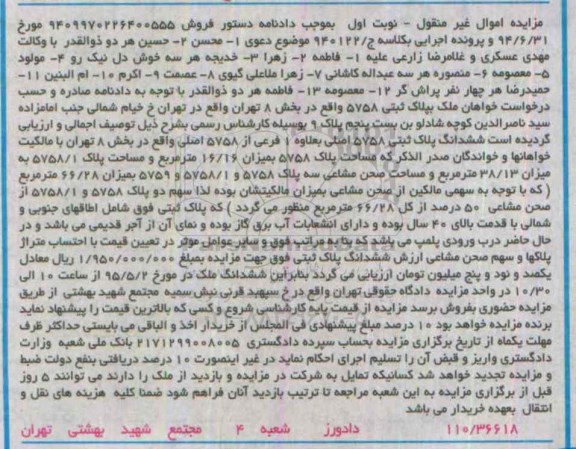 مزایده اموال غیر منقول - نوبت اول  بموجب دادنامه دستور فروش ۹۴۰۹۹۷۰۲۲۶۴۰۰۵۵۵ مورخ
۹۴/۶/۳۱ و پرونده اجرایی بکلاسه ج/۹۴۰۱۲۲ موضوع دعوی ۱- محسن ۲- حسین هر دو ذوالقدر با وکالت
مهدی عسکری و غلامرضا زارعی علیه ۱- فاطمه ۲- زهرا ۳- خدیجه هر سه خوش دل نیک رو ۴- مولود
۵- معصومه ۶- منصوره هر سه عبداله کاشانی ۷- زهرا ملاعلی گیوی ۸- عصمت ۹- اکرم ۱۰- ام البنین ۱۱-
حمیدرضا هر چهار نفر پراش گر ۱۲- معصومه ۱۳- فاطمه هر دو ذوالقدر با توجه به دادنامه صادره و حسب
درخواست خواهان ملک بپلاک ثبتی ۵۷۵۸ واقع در بخش ۸ تهران واقع در تهران خ خیام شمالی جنب امامزاده
سید ناصرالدین کوچه شادلو بن بست پنجم پلاک ۹ بوسیله کارشناس رسمی بشرح ذیل توصیف اجمالی و ارزیابی
گردیده است ششدانگ پلاک ثبتی ۵۷۵۸ اصلی بعلاوه ۱ فرعی از ۵۷۵۸ اصلی واقع در بخش ۸ تهران با مالکیت
خواهانها و خواندگان صدر الذکر که مساحت پلاک ۵۷۵۸ بمیزان ۱۶/۱۶ مترمربع و مساحت پلاک ۵۷۵۸/۱ به
میزان ۳۸/۱۳ مترمربع و مساحت صحن مشاعی سه پلاک ۵۷۵۸ و ۵۷۵۸/۱ و ۵۷۵۹ بمیزان ۶۶/۲۸ مترمربع
( که با توجه به سهمی مالکین از صحن مشاعی بمیزان مالکیتشان بوده لذا سهم دو پلاک ۵۷۵۸ و ۵۷۵۸/۱ از
صحن مشاعی ۵۰ درصد از کل ۶۶/۲۸ مترمربع منظور می گردد ) که پلاک ثبتی فوق شامل اطاقهای جنوبی و
شمالی با قدمت بالای ۴۰ سال بوده و دارای انشعابات آب برق گاز بوده و نمای آن از آجر قدیمی می باشد و در
حال حاضر درب ورودی پلمب می باشد که بنا به مراتب فوق و سایر عوامل موثر در تعیین قیمت با احتساب متراژ
پلاکها و سهم صحن مشاعی ارزش ششدانگ پلاک ثبتی فوق جهت مزایده بمبلغ ۱/۹۵۰/۰۰۰/۰۰۰ ریال معادل
یکصد و نود و پنج میلیون تومان ارزیابی می گردد بنابراین ششدانگ ملک در مورخ ۹۵/۵/۲ از ساعت ۱۰ الی
۱۰/۳۰ در واحد مزایده دادگاه حقوقی تهران واقع در خ سپهبد قرنی نبش سمیه مجتمع شهید بهشتی از طریق
مزایده حضوری بفروش برسد مزایده از قیمت پایه کارشناسی شروع و کسی که بالاترین قیمت را پیشنهاد نماید
برنده مزایده خواهد بود ۱۰ درصد مبلغ پیشنهادی فی المجلس از خریدار اخذ و الباقی می بایستی حداکثر ظرف
مهلت یکماه از تاریخ برگزاری مزایده بحساب سپرده دادگستری ۲۱۷۱۲۹۹۰۰۸۰۰۵ بانک ملی شعبه وزارت
دادگستری واریز و قبض آن را تسلیم اجرای احکام نماید در غیر اینصورت ۱۰ درصد دریافتی بنفع دولت ضبط
و مزایده تجدید خواهد شد کسانیکه تمایل به شرکت در مزایده و بازدید از ملک را دارند می توانند ۵ روز
قبل از برگزاری مزایده به این شعبه مراجعه تا ترتیب بازدید آنان فراهم شود ضمنا کلیه هزینه های نقل و
انتقال بعهده خریدار می باشد
۱۱۰/۳۶۶۱۸ دادورز شعبه ۴ مجتمع شهید بهشتی تهران